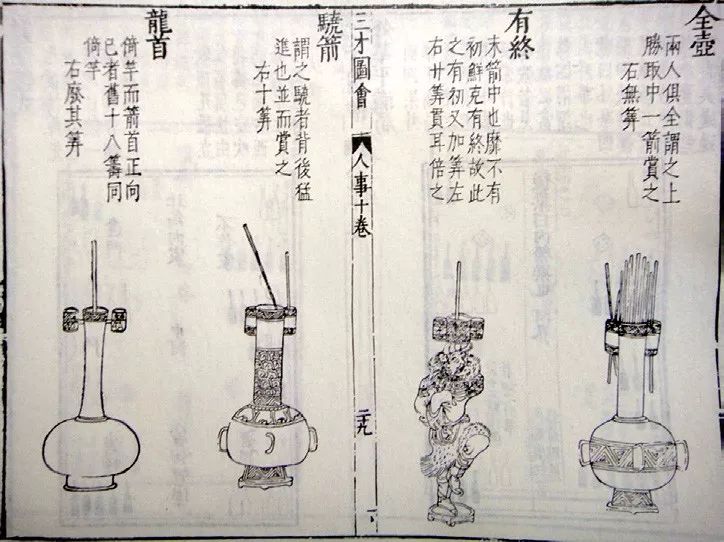 全壺
兩人俱全謂之上
勝取中一箭賞之
右無筭
有終
末箭中也靡不有
初鮮克有終故此
之有初又加筭左
右廿筭貫耳倍之
三才圖會
人事十卷
二九
驍箭
謂之驍者背後猛
進也並而賞之
右十筭
龍首
倚竿而箭首正向
已者舊十八籌同
倚竿
右廢其筭